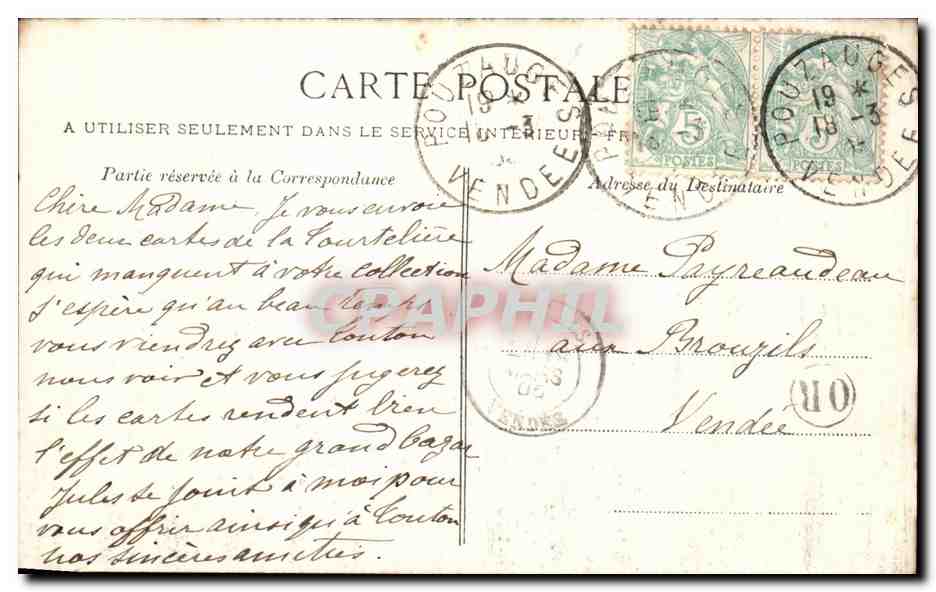 CARTE POSTALE
A UTILISER SEULEMENT DANS LE SERVICE INTÉRIEUR - FR
Partie réservée à la Correspondance
Adresse du Destinataire
POUZAUGES
19 *
18 -3
VENDÉE
POUZAUGES
19 *
18 -3
VENDÉE
5
POSTES
5
POSTES
Chère Madame, Je vous envoie
les deux cartes de la Tourtelière
qui manquent à votre collection
j'espère qu'au beau temps
vous viendrez avec Tonton
nous voir et vous jugerez
si les cartes rendent bien
l'effet de notre grand bazar
Jules se joint à moi pour
vous offrir ainsi qu'à Tonton
nos sincères amitiés.
Madame Payreaudeau
aux Brouzils
Vendée
OR
VENDÉE
CPAPHIL